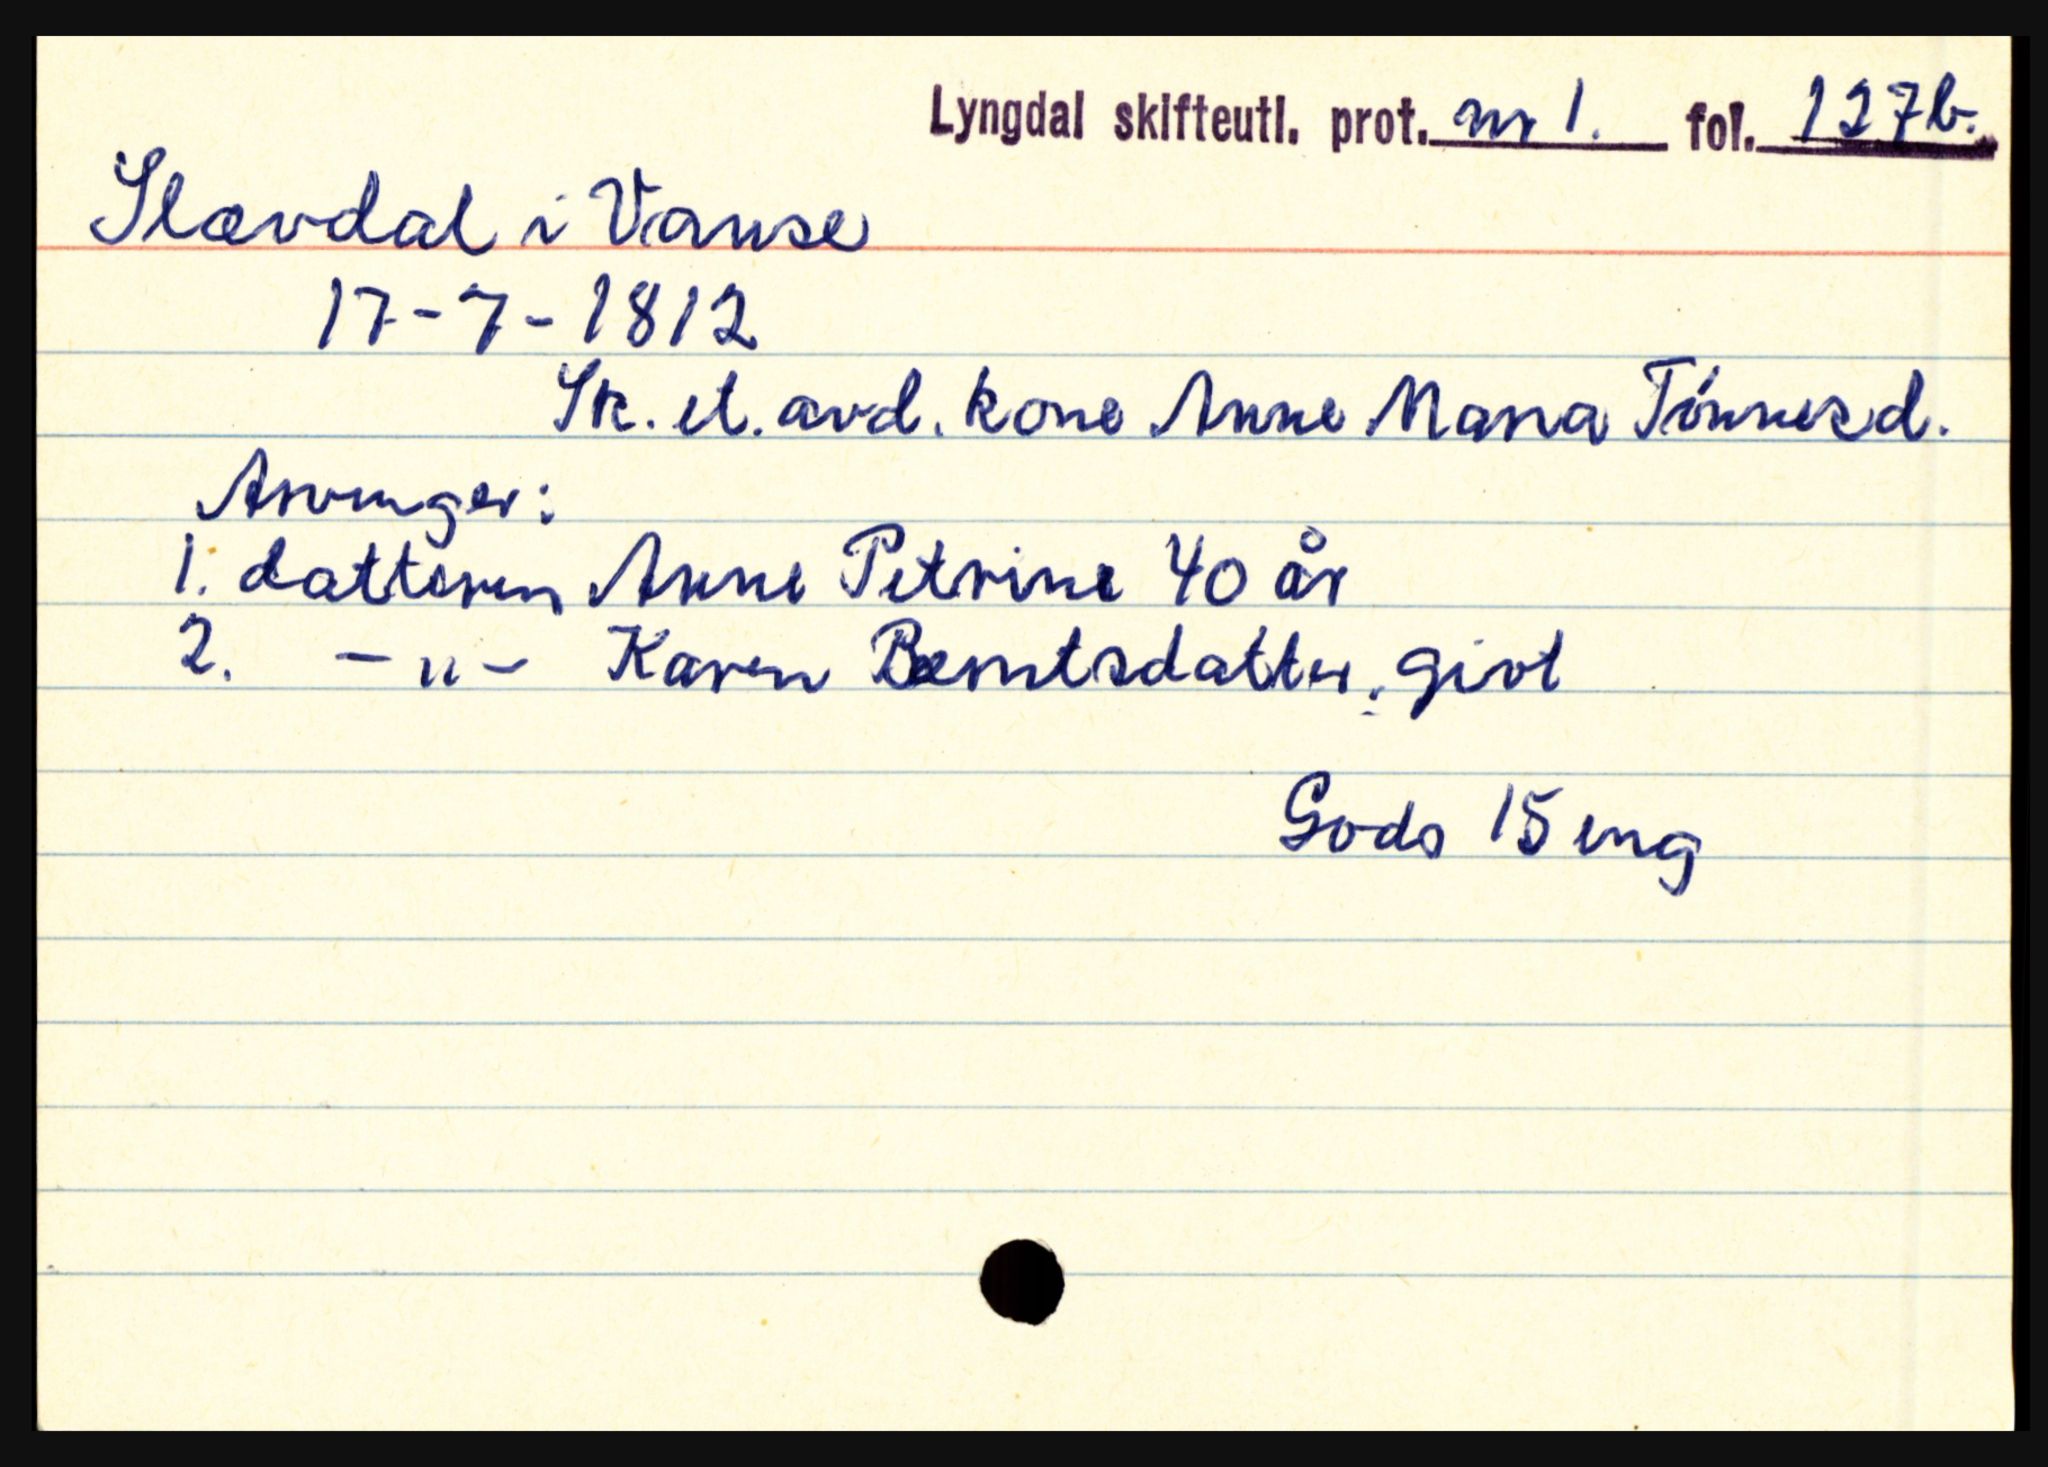 Lyngdal skifteutl. prot. nr 1. fol. 127b.
Slævdal i Vanse
17-7-1812
Sk. et. avd. kone Anne Maria Tønnesd.
Arvinger:
1. datteren Anne Petrine 40 år
2. -"- Karen Berntsdatter, givt
Gods 15 eng